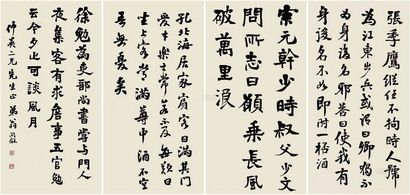 張季鷹不拘時人號
為江東步兵或謂曰卿獨不
為身後名耶答曰使我有
身後名不如即時一杯酒
宗元幹少時叔父少文
問所志曰願乘長風
破萬里浪
孔北海居家賓客日滿其門
愛才樂士常若不足每歎曰
坐上客常滿尊中酒不空
吾無憂矣
徐勉為吏部尚書嘗與門人
夜集客有求詹事五官勉
云今夕止可談風月